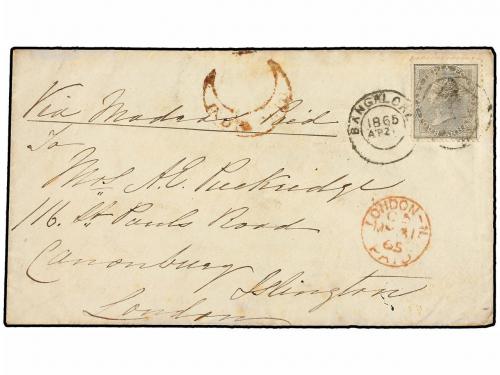 Via Madras Paid
BANGALORE
1865
AP 21
To
Mrs. A.E. Puckridge
116. St. Pauls Road
LONDON-N
65
PAID
Canonbury Islington
London